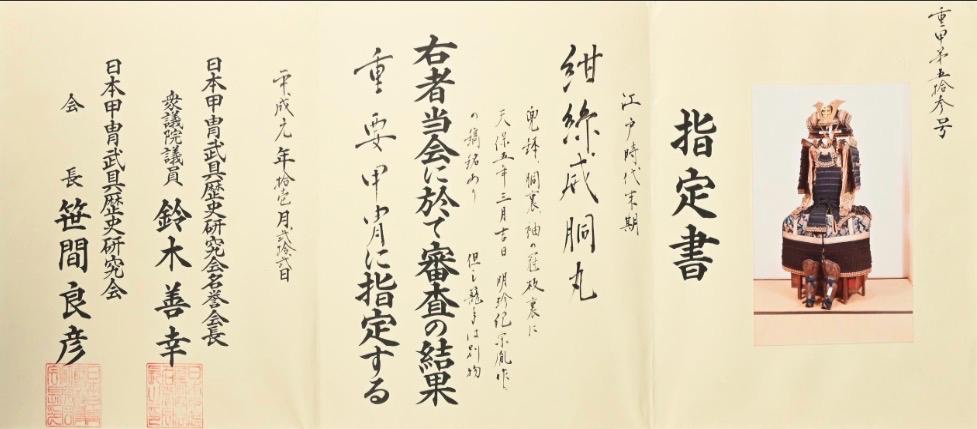 重甲第五拾参号
指定書
江戸時代末期
紺絲威胴丸
兜鉢、胴裏、袖の冠板裏に
天保五年三月吉日 明珍紀宗胤作之
の鏑銘あり 但し籠手は別物
右者当会に於て審査の結果
重要甲冑に指定する
平成元年拾壱月弐拾弐日
日本甲冑武具歴史研究会名誉会長
衆議院議員 鈴木善幸
日本甲冑武具歴史研究会
会長 笹間良彦